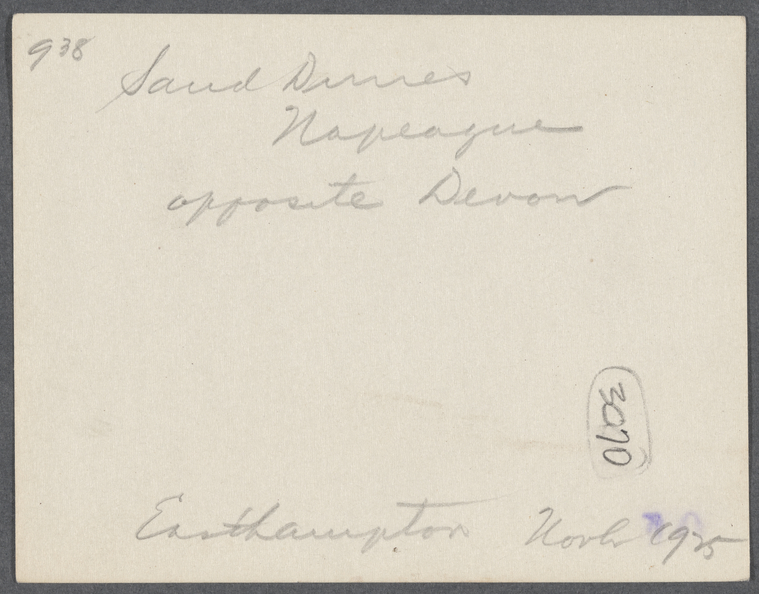 938
Sand Dunes
Napeague
opposite Devon
Easthampton Nov 1925